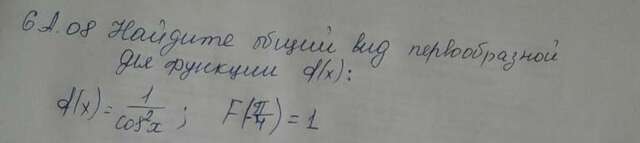 6А.08 Найдите общий вид первообразной
для функции f(x):
f(x) = 1/cos²x ; F(π/4) = 1